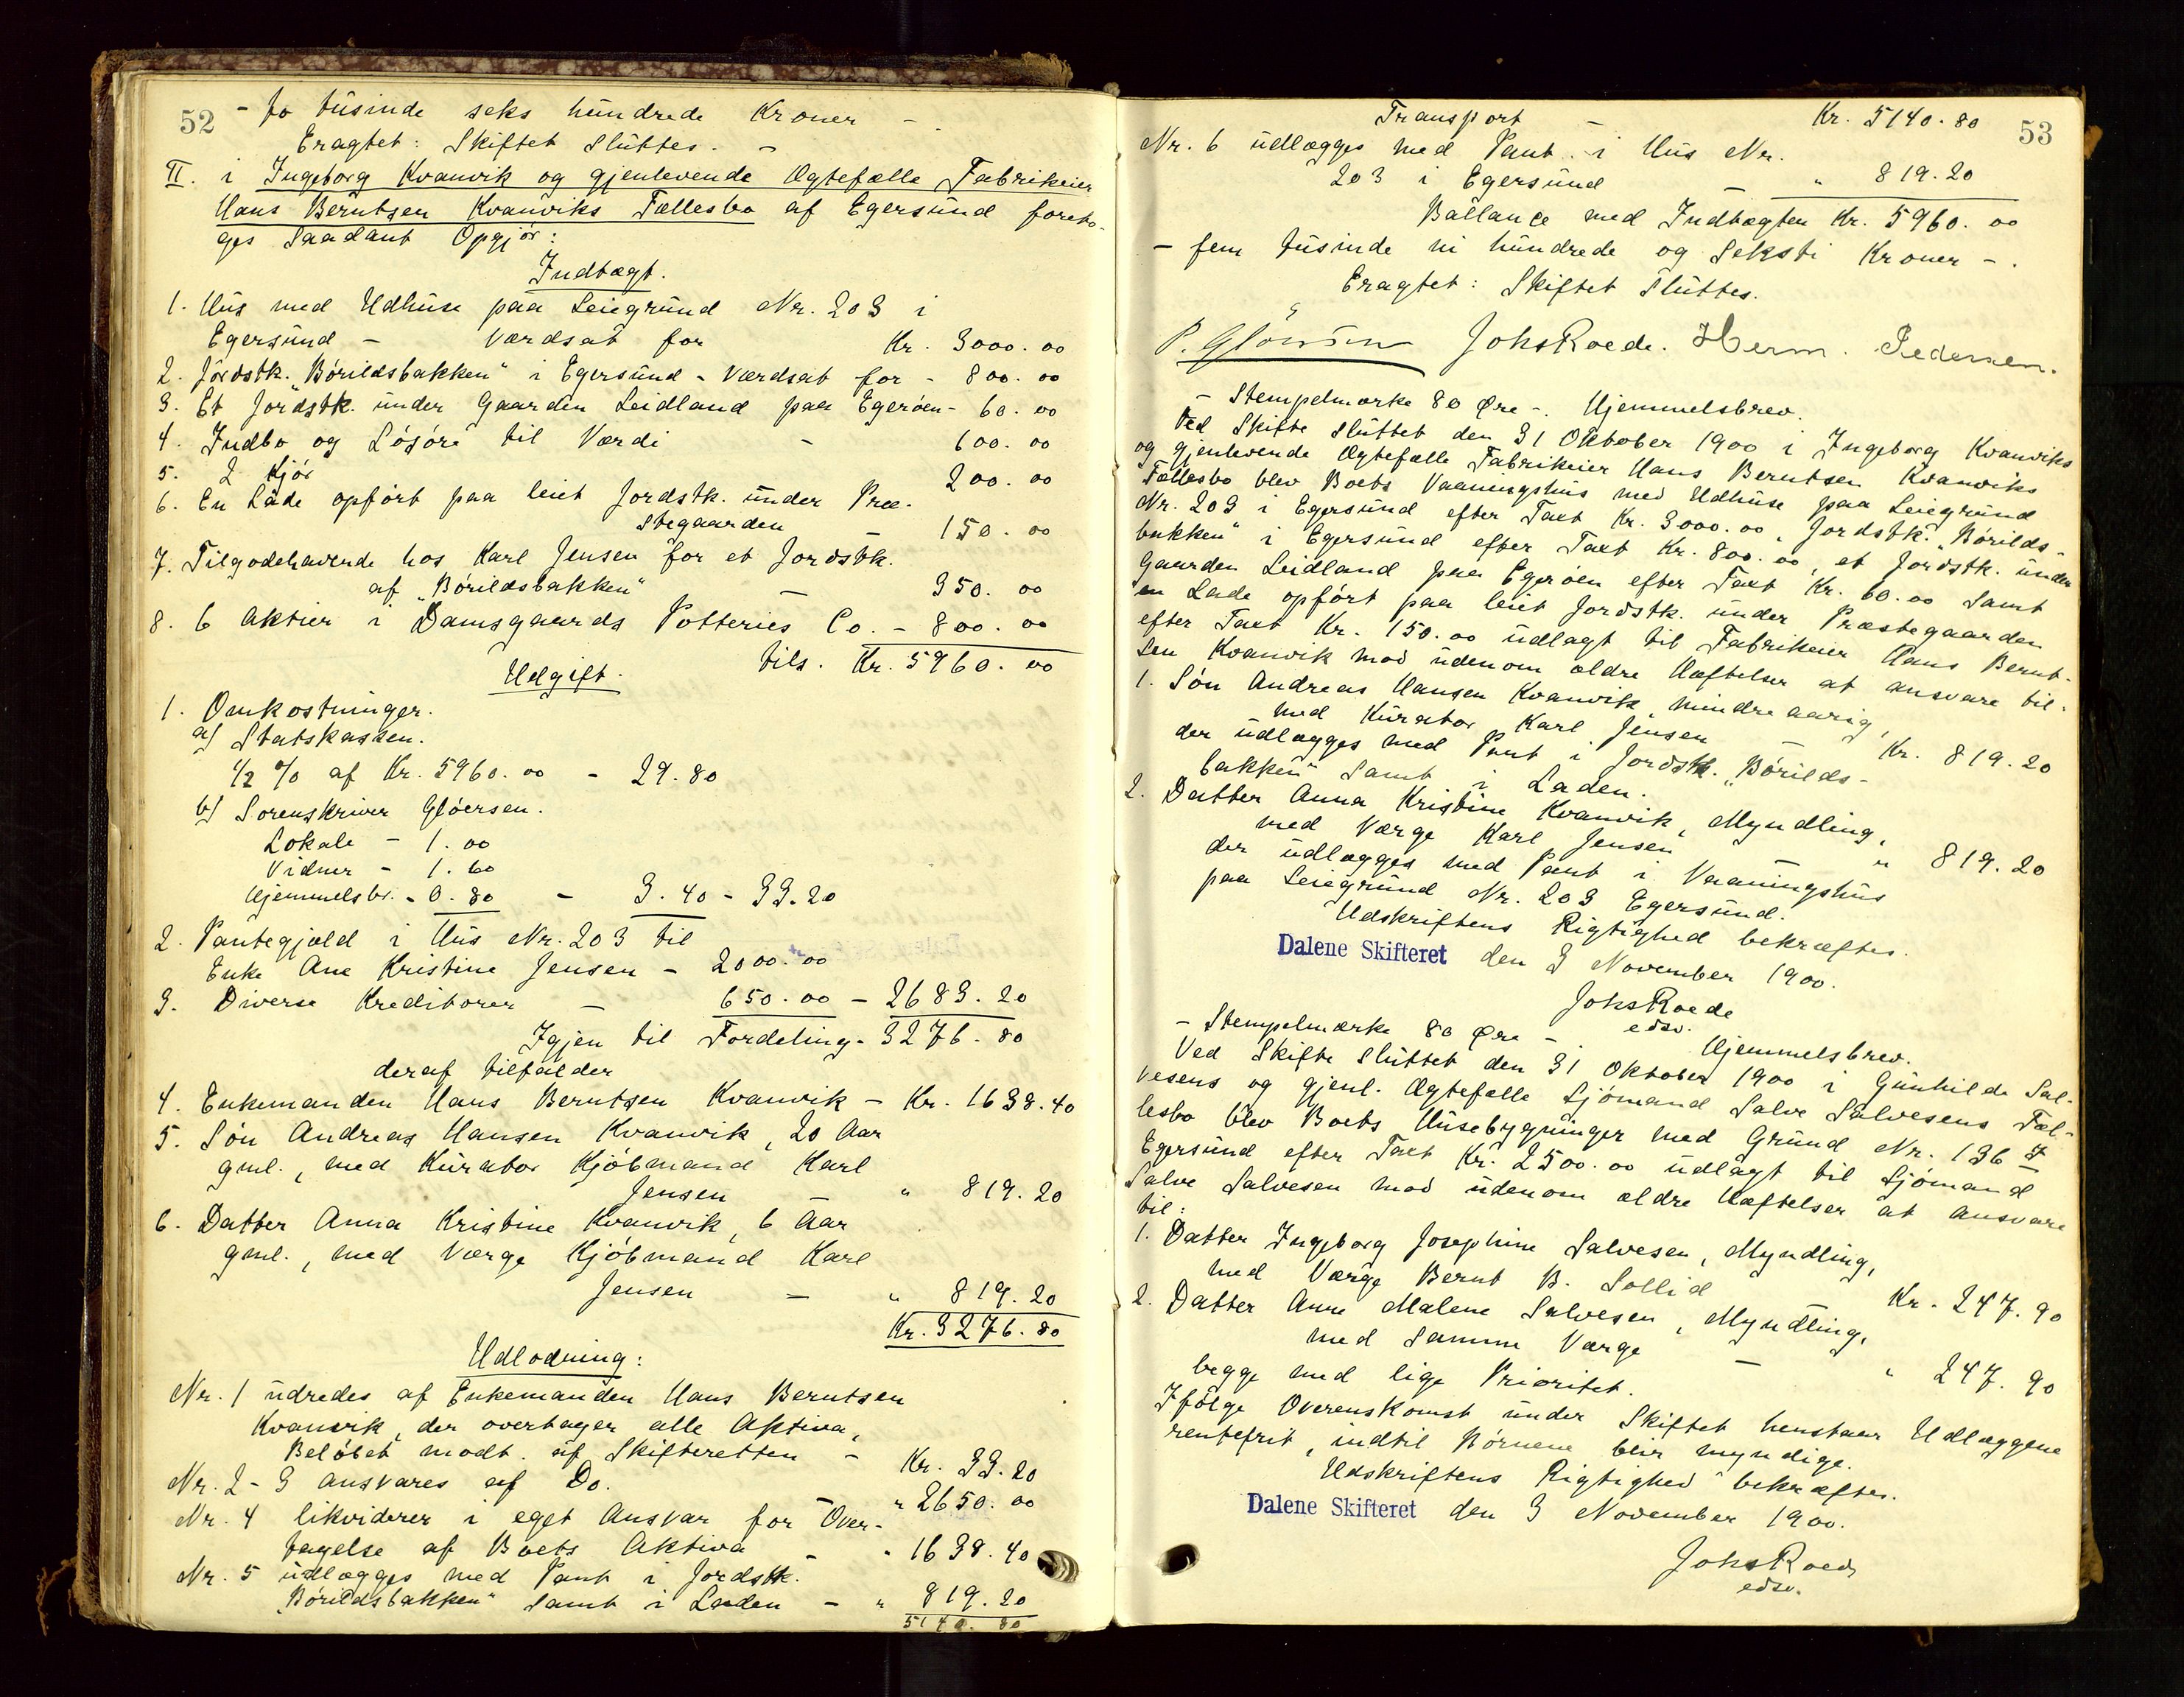 52
- to tusinde seks hundrede Kroner -.
Eragtet: Skiftet sluttes. -
II. i Ingeborg Kvanvik og gjenlevende Ægtefælle Fabrikeier
Hans Berntsen Kvanviks Fællesbo af Egersund foreta-
ges saadant Opgjör:
Indtægt.
1. Hus med Udhuse paa Leiegrund Nr. 203 i
Egersund - Værdsat for Kr. 3000.00
2. Jordstk. "Börildsbakken" i Egersund - Værdsat for - 800.00
3. Et Jordstk. under Gaarden Leidland paa Egeröen - 60.00
4. Indbo og Lösöre til Værdi - 600.00
5. 2 Kjör 200.00
6. En Lade opfört paa leiet Jordstk. under Præ-
stegaarden - 150.00
7. Tilgodehavende hos Karl Jensen for et Jordstk.
af "Börildsbakken" - 350.00
8. 6 Aktier i Damsgaards Potteries Co. - 800.00
tils. Kr. 5960.00
Udgift.
1. Omkostninger.
a) Statskassen.
1/2 % af Kr. 5960.00 - 29.80
b) Sorenskriver Glöersen.
Lokale - 1.00
Vidner - 1.60
Hjemmelsbr. - 0.80 - 3.40 - 33.20
2. Pantegjæld i Hus Nr. 203 til
Enke Ane Kristine Jensen - 2000.00
3. Diverse Kreditorer - 650.00 - 2683.20
Igjen til Fordeling - 3276.80
deraf tilfalder
4. Enkemanden Hans Berntsen Kvanvik - Kr. 1638.40
5. Sön Andreas Hansen Kvanvik, 20 Aar
gml., med Kurator Kjöbmand Karl
Jensen - " 819.20
6. Datter Anna Kristine Kvanvik, 6 Aar
gml., med Værge Kjöbmand Karl
Jensen - " 819.20
Kr. 3276.80
Udlodning:
Nr. 1 udredes af Enkemanden Hans Berntsen
Kvanvik, der overtager alle Aktiva,
Belöbet modt. af Skifteretten - Kr. 33.20
Nr. 2-3 ansvares af Do. - " 2650.00
Nr. 4 likviderer i eget Ansvar for Over-
tagelse af Boets Aktiva - " 1638.40
Nr. 5 udlægges med Pant i Jordstk.
"Börildsbakken" samt i Laden - " 819.20
5140.80
53
Transport - Kr. 5140.80
Nr. 6 udlægges med Pant i Hus Nr.
203 i Egersund - " 819.20
Ballance med Indtægten Kr. 5960.00
- fem tusinde ni hundrede og Seksti Kroner -.
Eragtet: Skiftet sluttes.
P. Glöersen JohsRoede. Herm. Pedersen.
- Stempelmærke 80 Øre -. Hjemmelsbrev.
Ved Skifte sluttet den 31 Oktober 1900 i Ingeborg Kvanviks
og gjenlevende Ægtefælle Fabrikeier Hans Berntsen Kvanviks
Fællesbo blev Boets Vaaningshus med Udhuse paa Leiegrund
Nr. 203 i Egersund efter Taxt Kr. 3000.00, Jordstk. "Börilds-
bakken" i Egersund efter Taxt Kr. 800.00, et Jordstk. under
Gaarden Leidland paa Egeröen efter Taxt Kr. 60.00 samt
en Lade opfört paa leiet Jordstk. under Præstegaarden
efter Taxt Kr. 150.00 udlagt til Fabrikeier Hans Bernt-
sen Kvanvik mod udenom ældre Hæftelser at ansvare til:
1. Sön Andreas Hansen Kvanvik, mindreaarig,
med Kurator Karl Jensen - Kr. 819.20
der udlægges med Pant i Jordstk. "Börilds-
bakken" samt i Laden.
2. Datter Anna Kristine Kvanvik, Myndling,
med Værge Karl Jensen - " 819.20
der udlægges med Pant i Vaaningshus
paa Leiegrund Nr. 203 Egersund.
Udskriftens Rigtighed bekræftes.
Dalene Skifteret den 3 November 1900.
JohsRoede
edsv.
- Stempelmærke 80 Øre -. Hjemmelsbrev.
Ved Skifte sluttet den 31 Oktober 1900 i Gunhilde Sal-
vesens og gjenl. Ægtefælle Sjömand Salve Salvesens Fæl-
lesbo blev Boets Husebygninger med Grund Nr. 136
Egersund efter Taxt Kr. 2500.00 udlagt til Sjömand
Salve Salvesen mod udenom ældre Hæftelser at ansvare
til:
1. Datter Ingeborg Josephine Salvesen, Myndling,
med Værge Bernt B. Sollid - Kr. 247.90
2. Datter Anne Malene Salvesen, Myndling,
med samme Værge - " 247.90
begge med lige Prioritet.
Ifölge Overenskomst under Skiftet henstaar Udlæggene
rentefrit, indtil Börnene blir myndige.
Udskriftens Rigtighed bekræftes.
Dalene Skifteret den 3 November 1900.
JohsRoede
edsv.